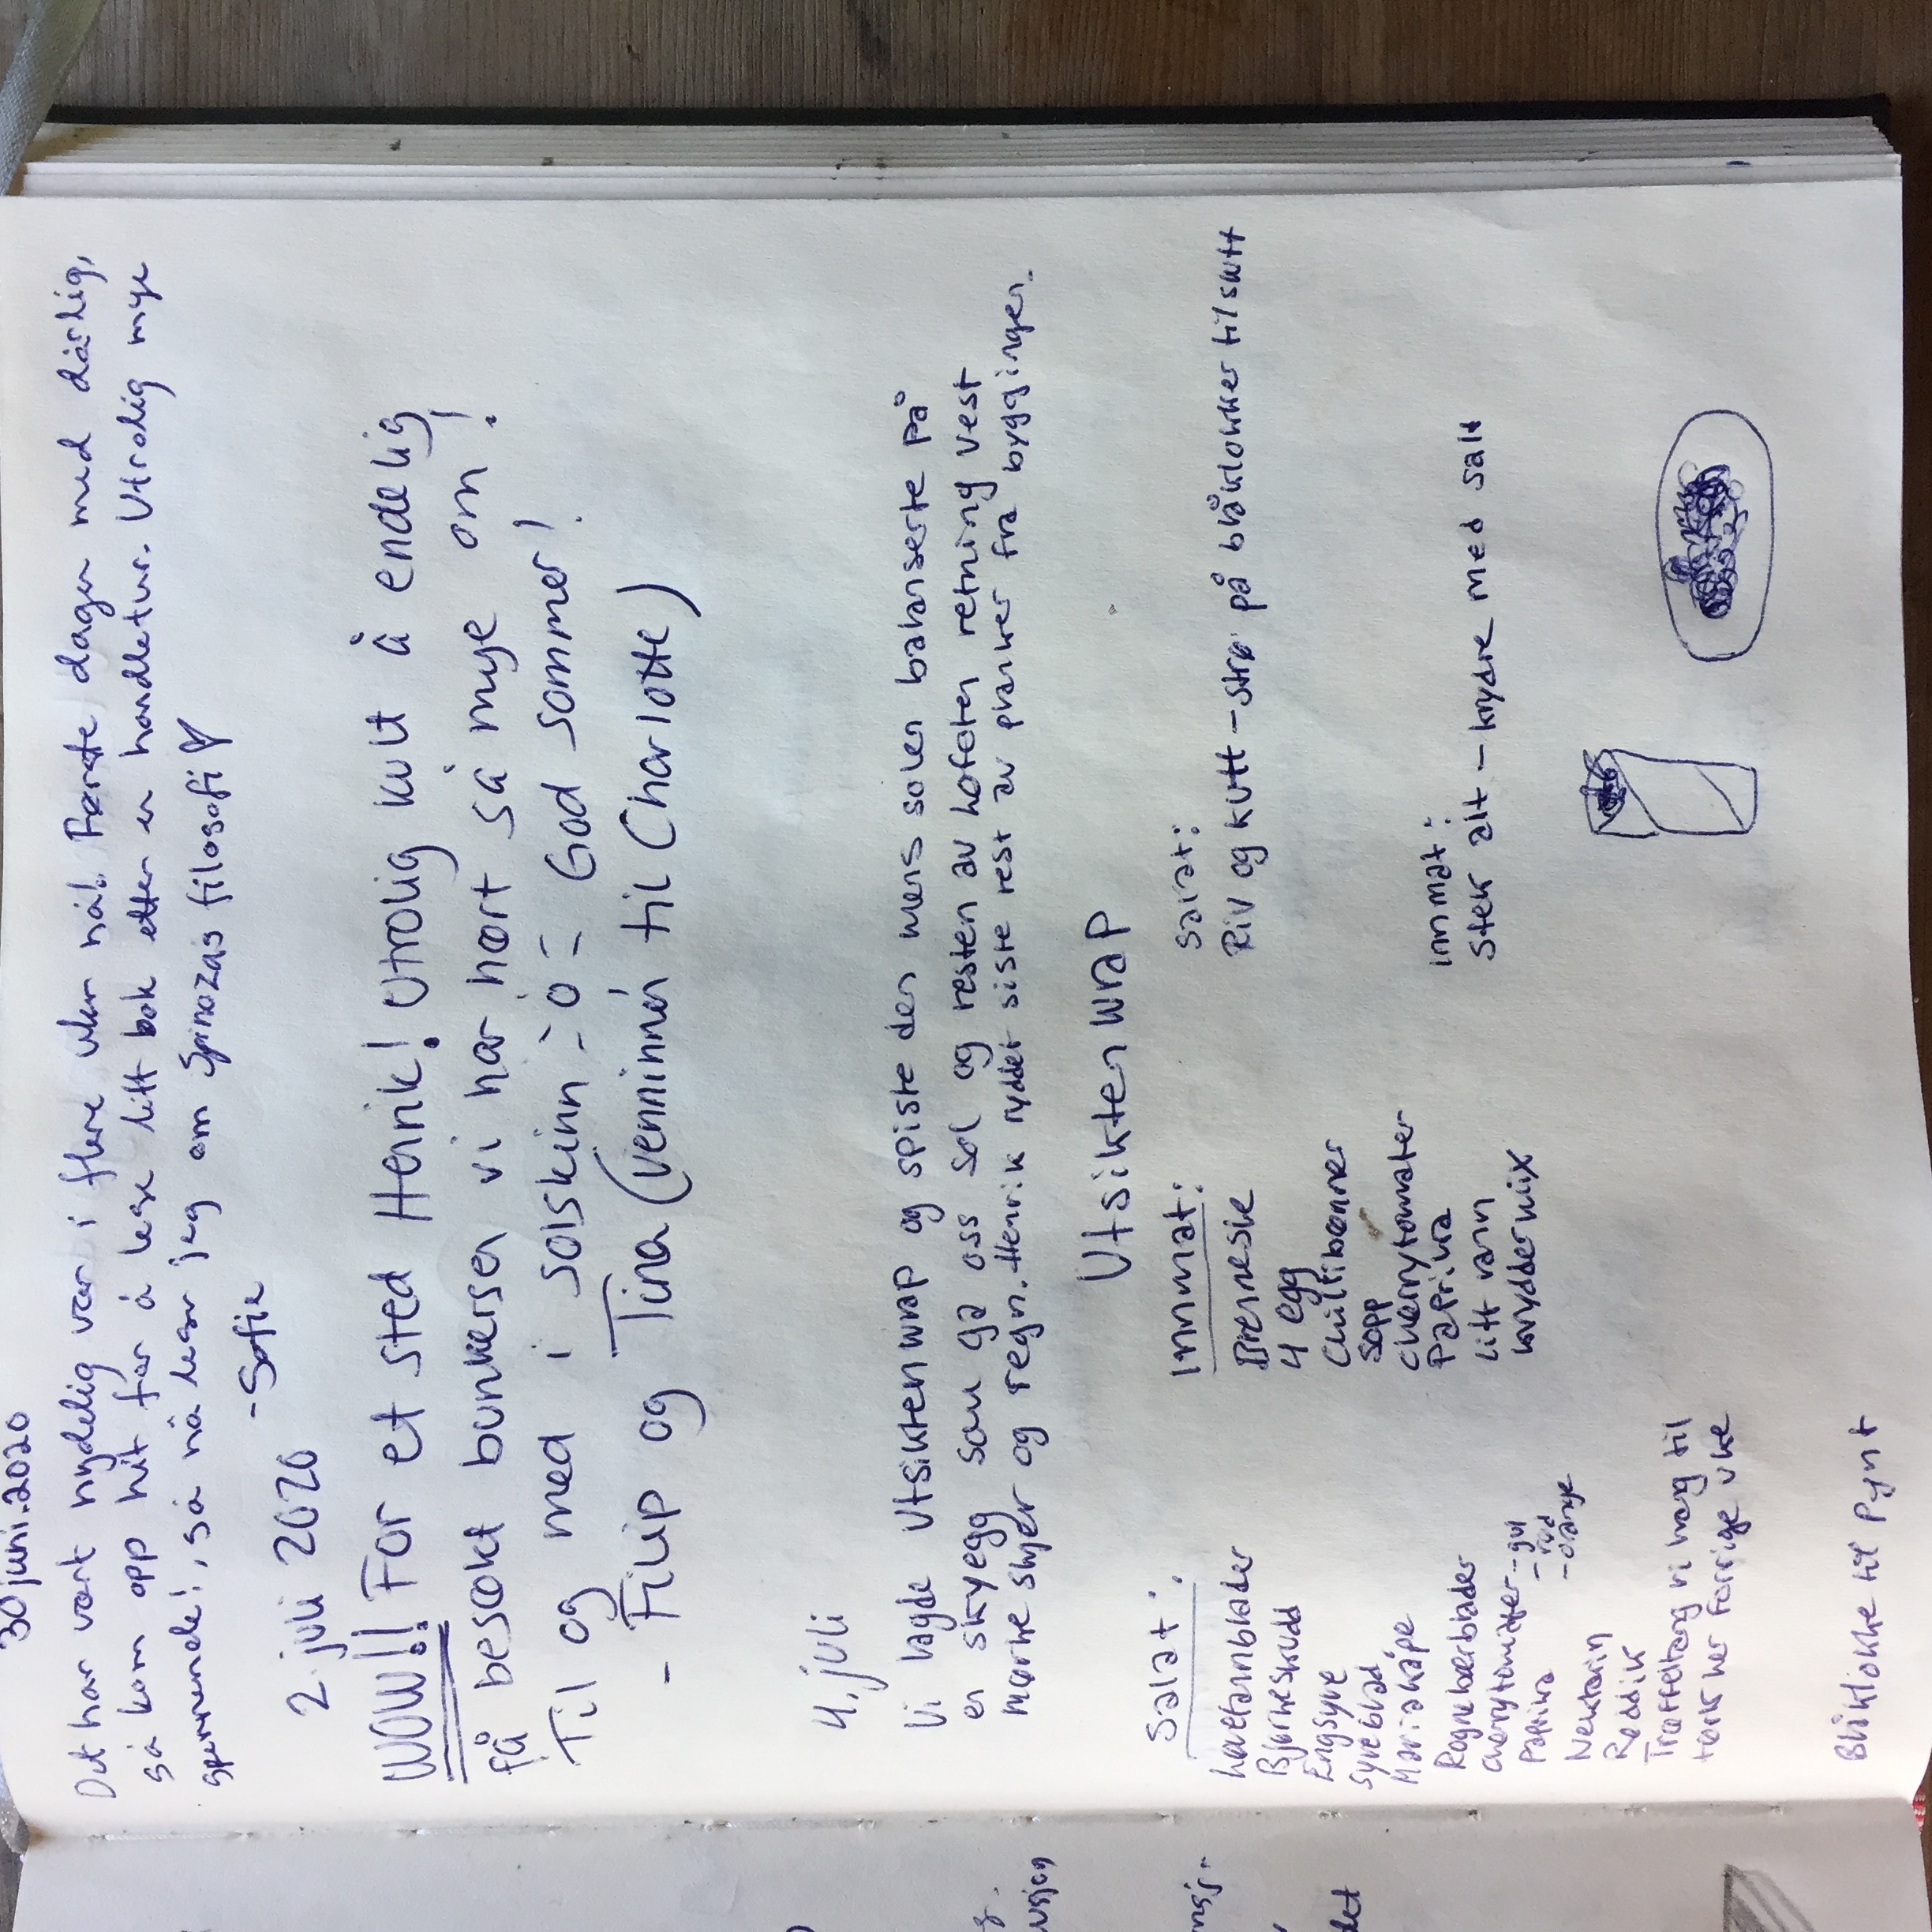 30 juni.2020
Det har vært nydelig vær i flere uker nå! Første dagen med dårlig,
så kom opp hit for å lese litt bok etter en handletur. Utrolig mye
spennende!, så nå leser jeg om Spinozas filosofi ♡
-Sofie
2. juli 2020
WOW!! For et sted Henrik! Utrolig kult å endelig
få besøkt bunkersen vi har hørt så mye om!
Til og med i solskinn God sommer!
- Filip og Tina (venninna til Charlotte)
4. juli
Vi lagde Utsiktenwrap og spiste den mens solen balanserte på
en skyegg som ga oss sol og resten av hofoten retning vest
mørke skyer og regn. Henrik ryddet siste rest av planker fra byggingen.
Utsiktenwrap
Salat:
Løvetannblader
Bjørkeskudd
Engsyre
Syreblad
Mariakåpe
Rognebærblader
Cherrytomater
Paprika
-gul
-rød
-orange
Nektarin
Reddik
Trøffeltang vi hang til
tørk her forrige uke
Blåklokke til pynt
Innmat:
Brennesle
4 egg
Chilibønner
Sopp
cherrytomater
Paprika
Litt vann
kryddermix
Salat:
Riv og kutt - strø på blåklokker tilslutt
innmat:
Stek alt - krydre med salt